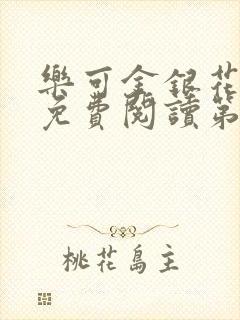 樂可金銀花
免費閱讀第
桃花島主